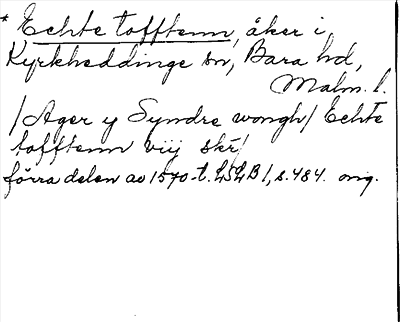 * Echte tofftenn, åker i
Kyrkheddinge sn, Bara hd,
Malm. l.
/Ager y Syndre wongh/ Echte
tofftenn viij skr/
förra delen av 1570-t. LSLB 1, s. 484. orig.